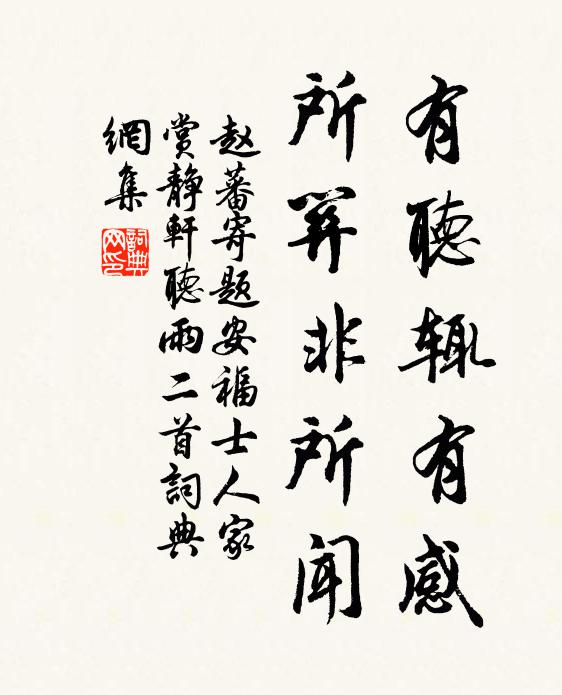 有聽輒有感
所非所聞
赵蕃寄题安福士人家
賞靜軒聽雨二首詞典
網集
詞典网印